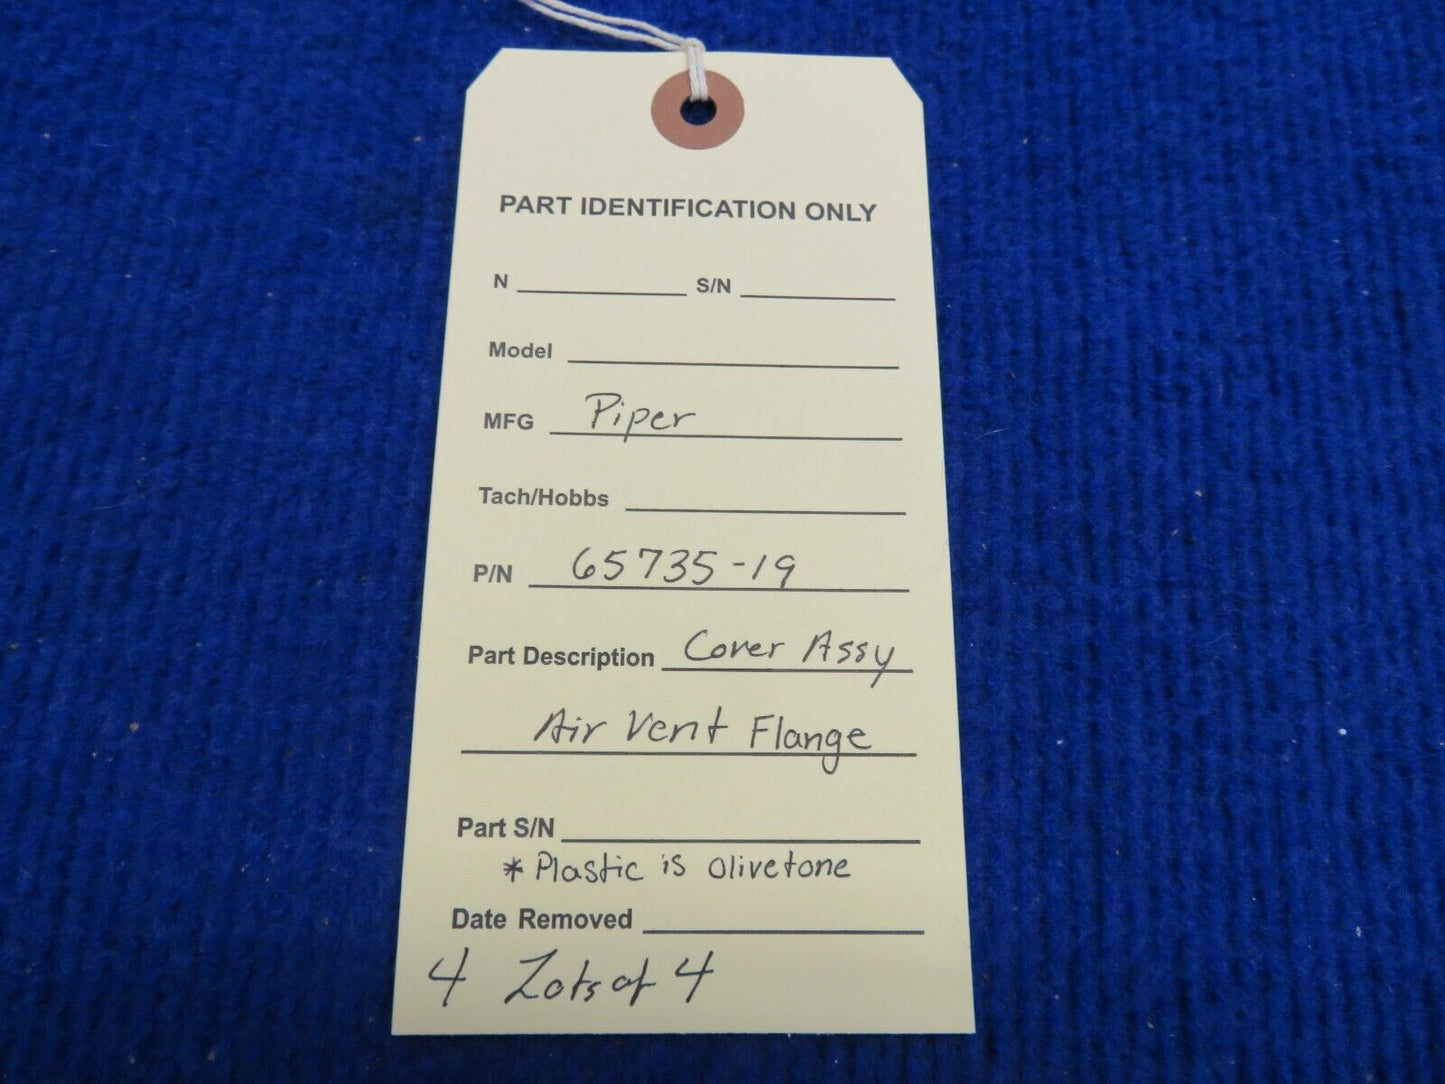 PART IDENTIFICATION ONLY
N S/N
Model
MFG Piper
Tach/Hobbs
P/N 65735-19
Part Description Cover Assy
Air Vent Flange
Part S/N
* Plastic is olivetone
Date Removed
4 Lots of 4